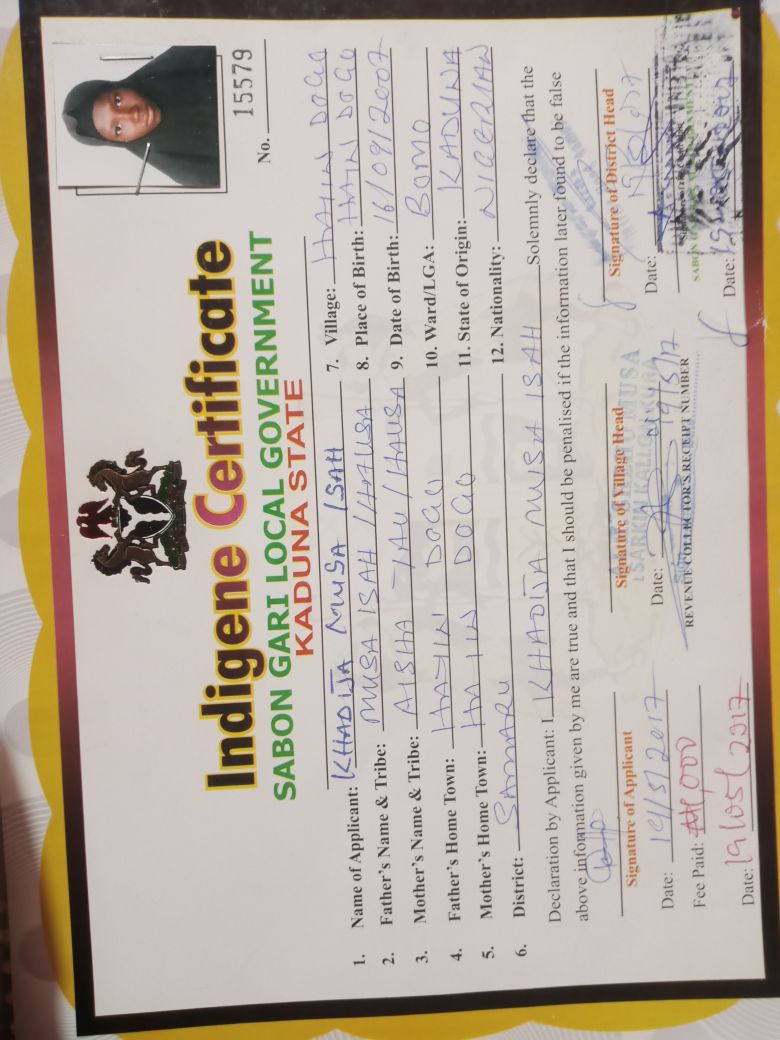 15579
No.
Indigene Certificate
SABON GARI LOCAL GOVERNMENT
KADUNA STATE
1. Name of Applicant: KHADIJA MUSA ISAH
2. Father's Name & Tribe: MUSA ISAH / HAUSA
3. Mother's Name & Tribe: AISHA / HAUSA
4. Father's Home Town: HAYIN DOGO
5. Mother's Home Town: HAYIN DOGO
6. District: SAMARU
7. Village: HAYIN DOGO
8. Place of Birth: HAYIN DOGO
9. Date of Birth: 16/09/2007
10. Ward/LGA: BOMO
11. State of Origin: KADUNA
12. Nationality: NIGERIAN
Declaration by Applicant: I KHADIJA MUSA ISAH Solemnly declare that the
above information given by me are true and that I should be penalised if the information later found to be false
Signature of Applicant
Date: 19/5/2017
Fee Paid: ₦1,000
Date: 19/05/2017
Signature of Village Head
SARKIN
Date: 19/5/17
REVENUE COLLECTOR'S RECEIPT NUMBER
Signature of District Head
Date:
SABON GARI
Date: